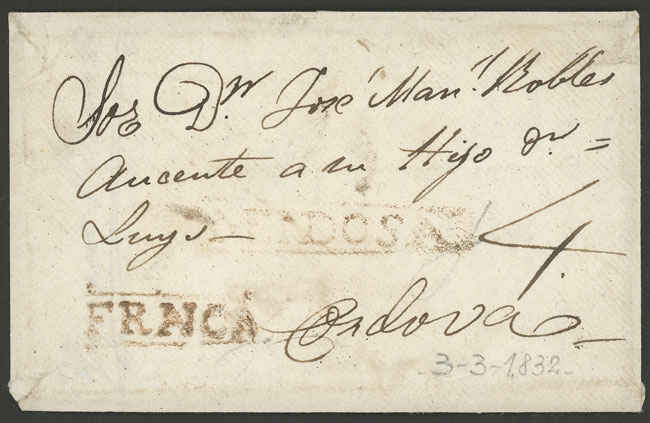 Sor Dn. José Manl. Robles
Aucente a su Hijo dn. =
Luys — 4.
FRNCA Cordova —
- 3-3-1832 -